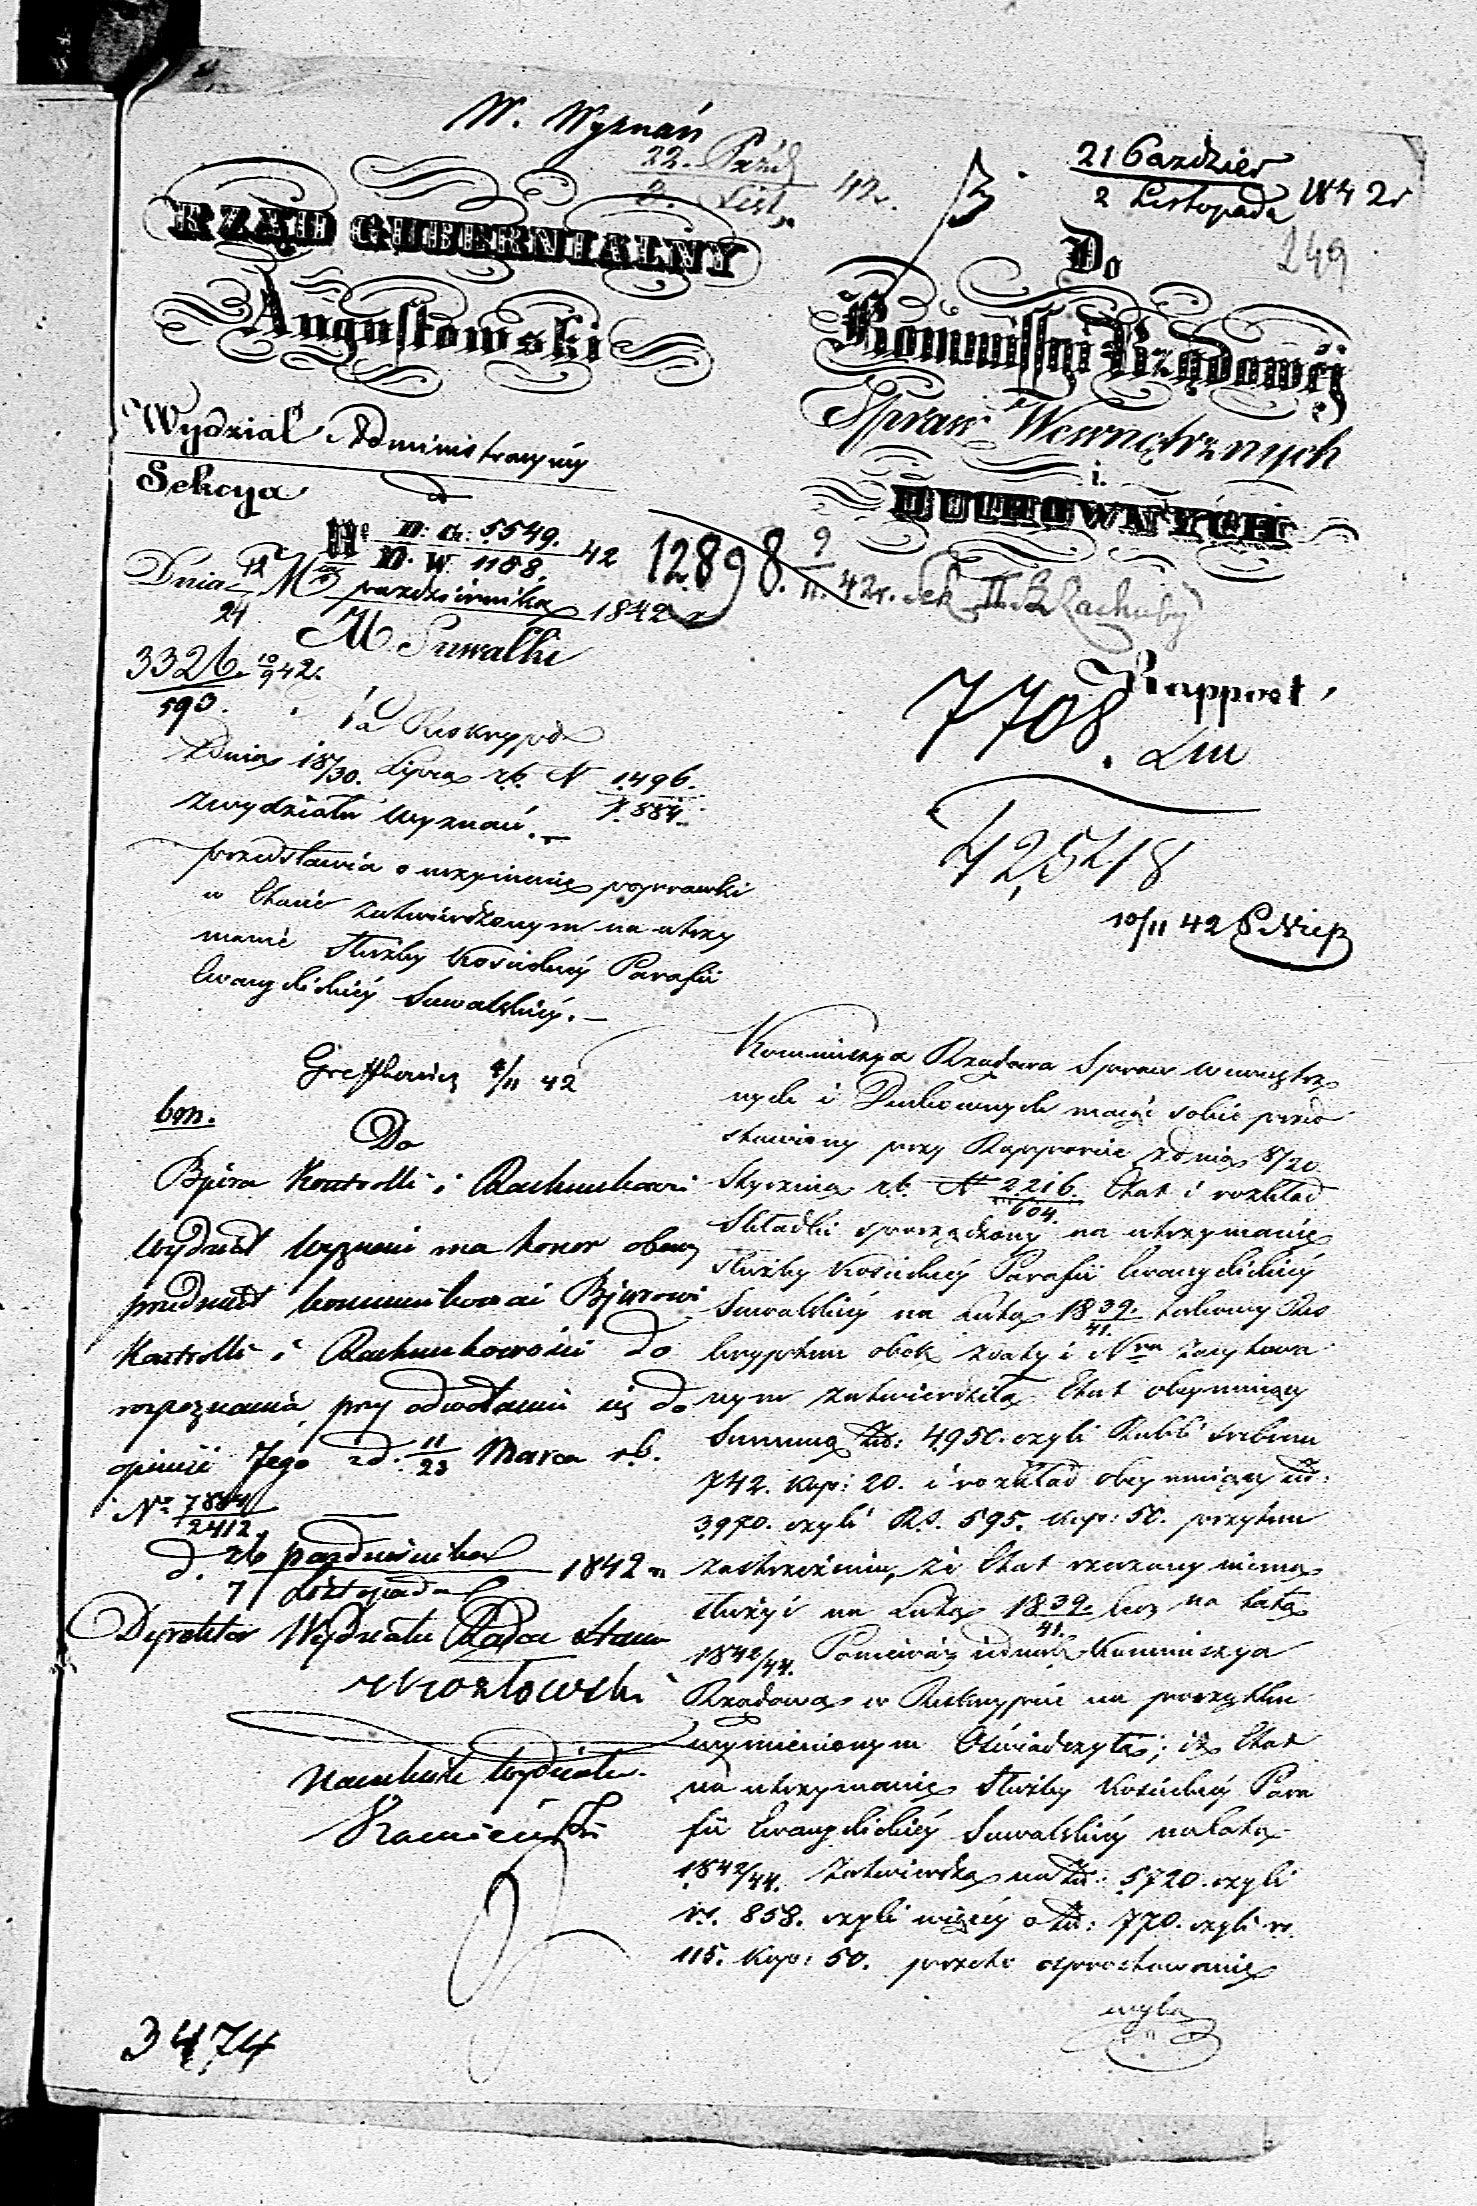 W. Wyznań
22. Paźd
2. List. 42r.
21 Pazdzier
2 Listopada 1842r
249
RZĄD GUBERNIALNY
Augustowski
Wydział Administracyjny
Sekcya
Nr D: G: 5549. 42
D. W. 1188.
Dnia 12/24 M października 1842 r
M. Suwałki
3326. 10/9 42r.
590.
Na Reskrypt
z Dnia 18/30. Lipca r.b. N 1496.
7.884.
z wydziału Wyznań.
przedstawia o uczynienie poprawki
w Etacie zatwierdzonym na utrzy
manie Służby Kościelnéj Parafii
Ewangelickiéj Suwalskiéj.
Do
Kommissyi Rządowéj
Spraw Wewnętrznych
i
DUCHOWNYCH
12898. 9/11. 42r. Sek II.
Rapport
7708. Lm
42548
10/11 42
4/11 42
bgn.
Do
Bjóra Kontrolli i Rachunkowości
Wydział Wyznań ma honor obecny
przedmiot kommunikować Bjurowi
Kontrolli i Rachunkowości do
rozpoznania przy odwołaniu się do
opinii Jego z d. 11/23 Marca r.b.
No 7884
2412.
d. 26 października 1842 r
7 Listopada
Dyrektor Wydziału Radca Stanu
Kozłowski
Naczelnik Wydziału
Kamieński
3474
Kommissya Rządowa Spraw Wewnętrz
nych i Duchownych mając sobie przed
stawiony przy Rapporcie z dnia 8/20
Stycznia r.b. N 2216. Etat i rozkład
604.
Składki sporządzony na utrzymanie
Służby Kościelnéj Parafii Ewangelickiéj
Suwalskiéj na Lata 1839. takowy Res
41.
kryptem obok z daty i Nru zacytowa
nym zatwierdziła Etat obejmujący
Summę Złp: 4950. czyli Rubli srebrem
742. Kop: 20. i rozkład obejmujący Złp:
3970. czyli R.S. 595. Kop: 50. przytem
zastrzeżeniu, że Etat rzeczony niema
służyć na Lata 1839. lecz na Lata
41.
1842/44. Ponieważ jednak Kommissya
Rządowa w Reskrypcie na początku
wymienionym Oświadczyła, iż Etat
na utrzymanie Służby Kościelnéj Para
fii Ewangelickiéj Suwalskiéj na lata
1842/44. zatwierdza na Złp: 5720. czyli
rs. 858. czyli więcéj o Złp: 770. czyli rs.
115. Kop: 50. przeto sprostowanie